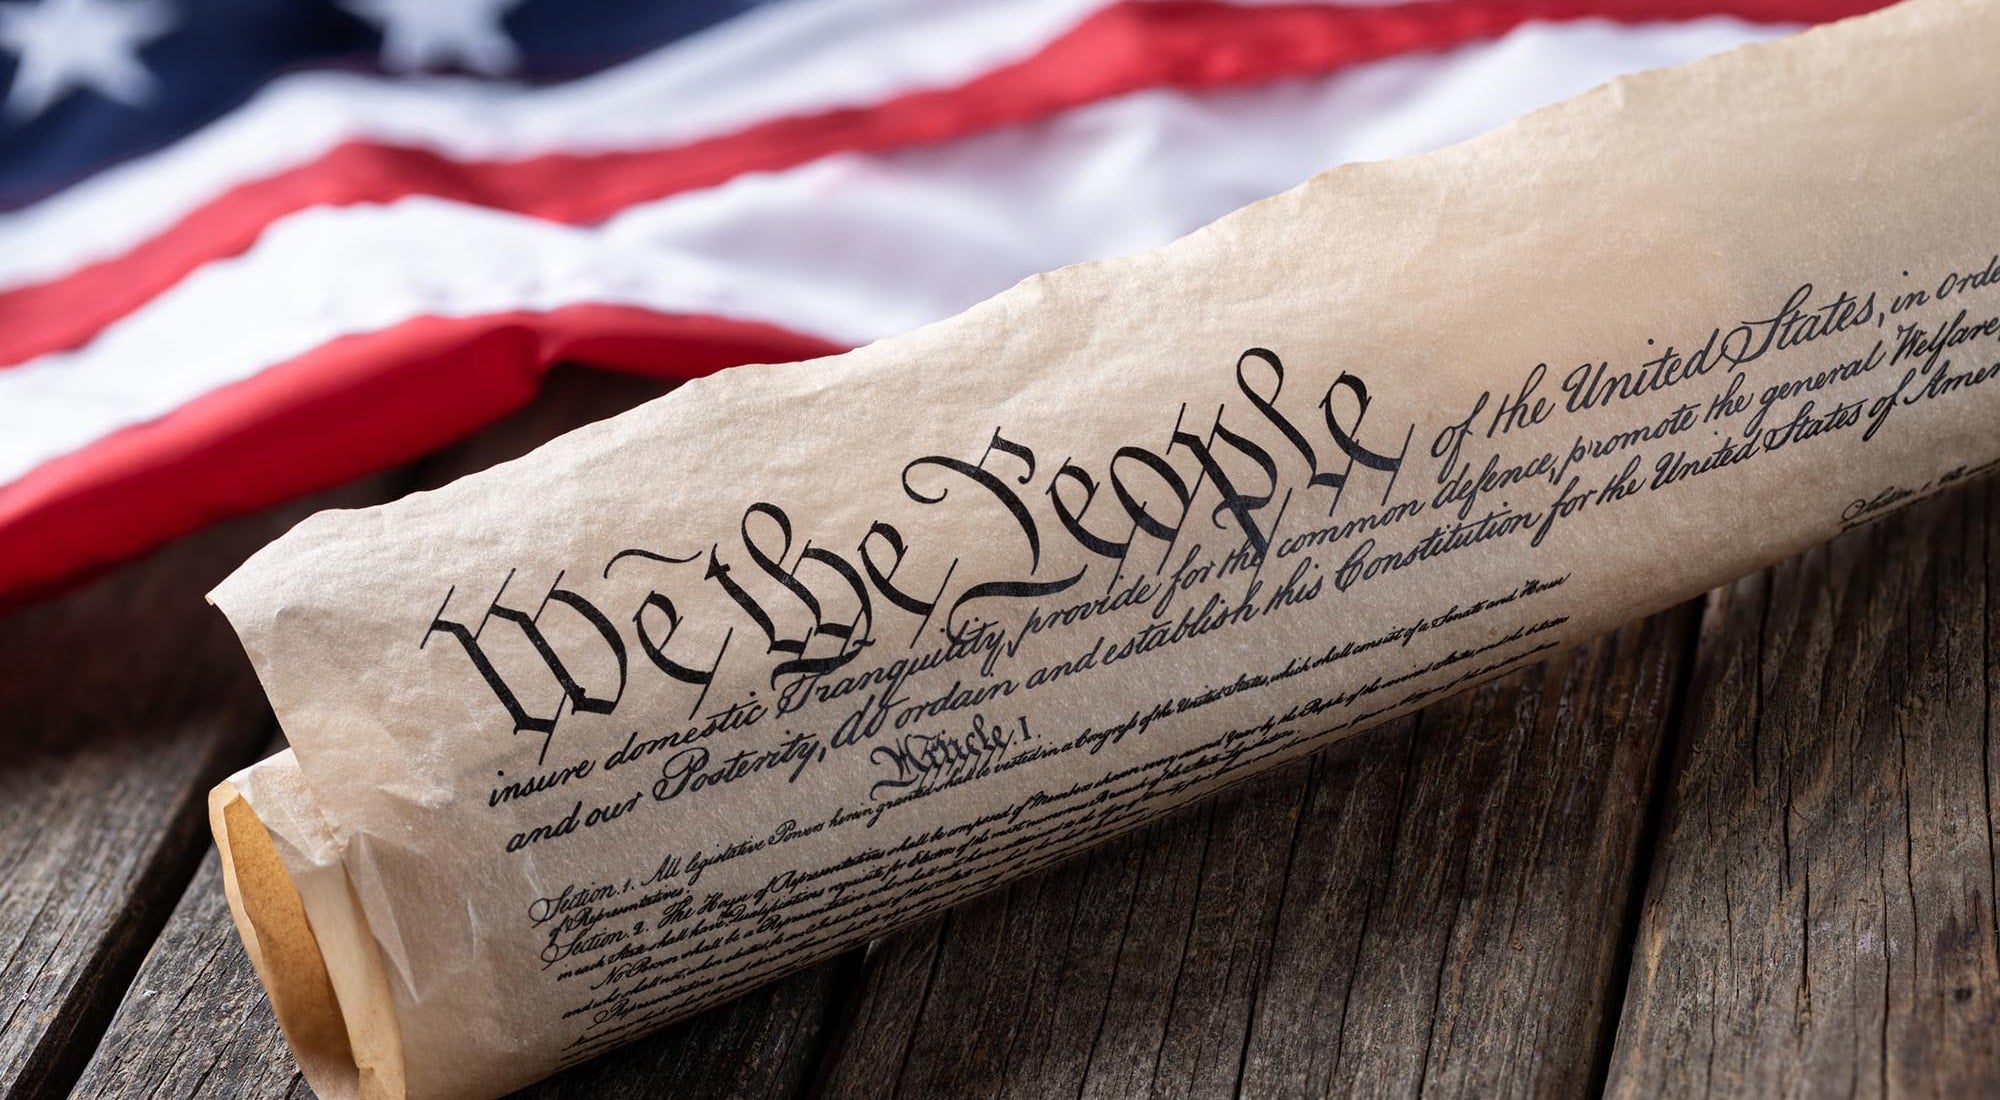 We the People of the United States, in Orde
insure domestic Tranquility, provide for the common defence, promote the general Welfare,
and our Posterity, do ordain and establish this Constitution for the United States of Amer
Article. I.
Section. 1. All legislative Powers herein granted shall be vested in a Congress of the United States, which shall consist of a Senate and House
of Representatives.
Section. 2. The House of Representatives shall be composed of Members chosen every second Year by the People of the several States, and the
in each State shall have Qualifications requisite for Electors of the most numerous Branch of the State Legislature.
No Person shall be a Representative who shall not have attained to the
and who shall not, when elected, be an Inhabitant of
Representatives and direct